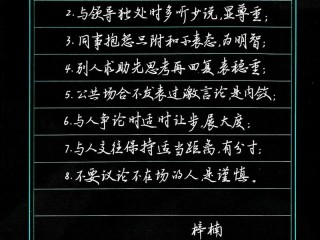 2.与领导独处时多听少说,显尊重;
3.同事抱怨只附和不表态,为明智;
4.别人求助先思考再回复表稳重;
5.公共场合不发表过激言论是内敛;
6.与人争论时适时让步展大度;
7.与人交往保持适当距离,有分寸;
8.不要议论不在场的人是谨慎。
梓楠